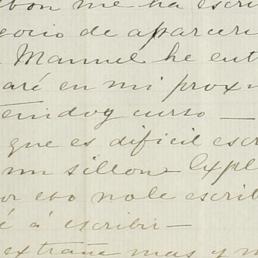 bon me ha escri
gocio de aparceri
Manuel he ent
aré en mi proxi
curso —
que es dificil escr
un sillon. Expl
or eso no le escrib
é á escribir —
extrañe mas y m